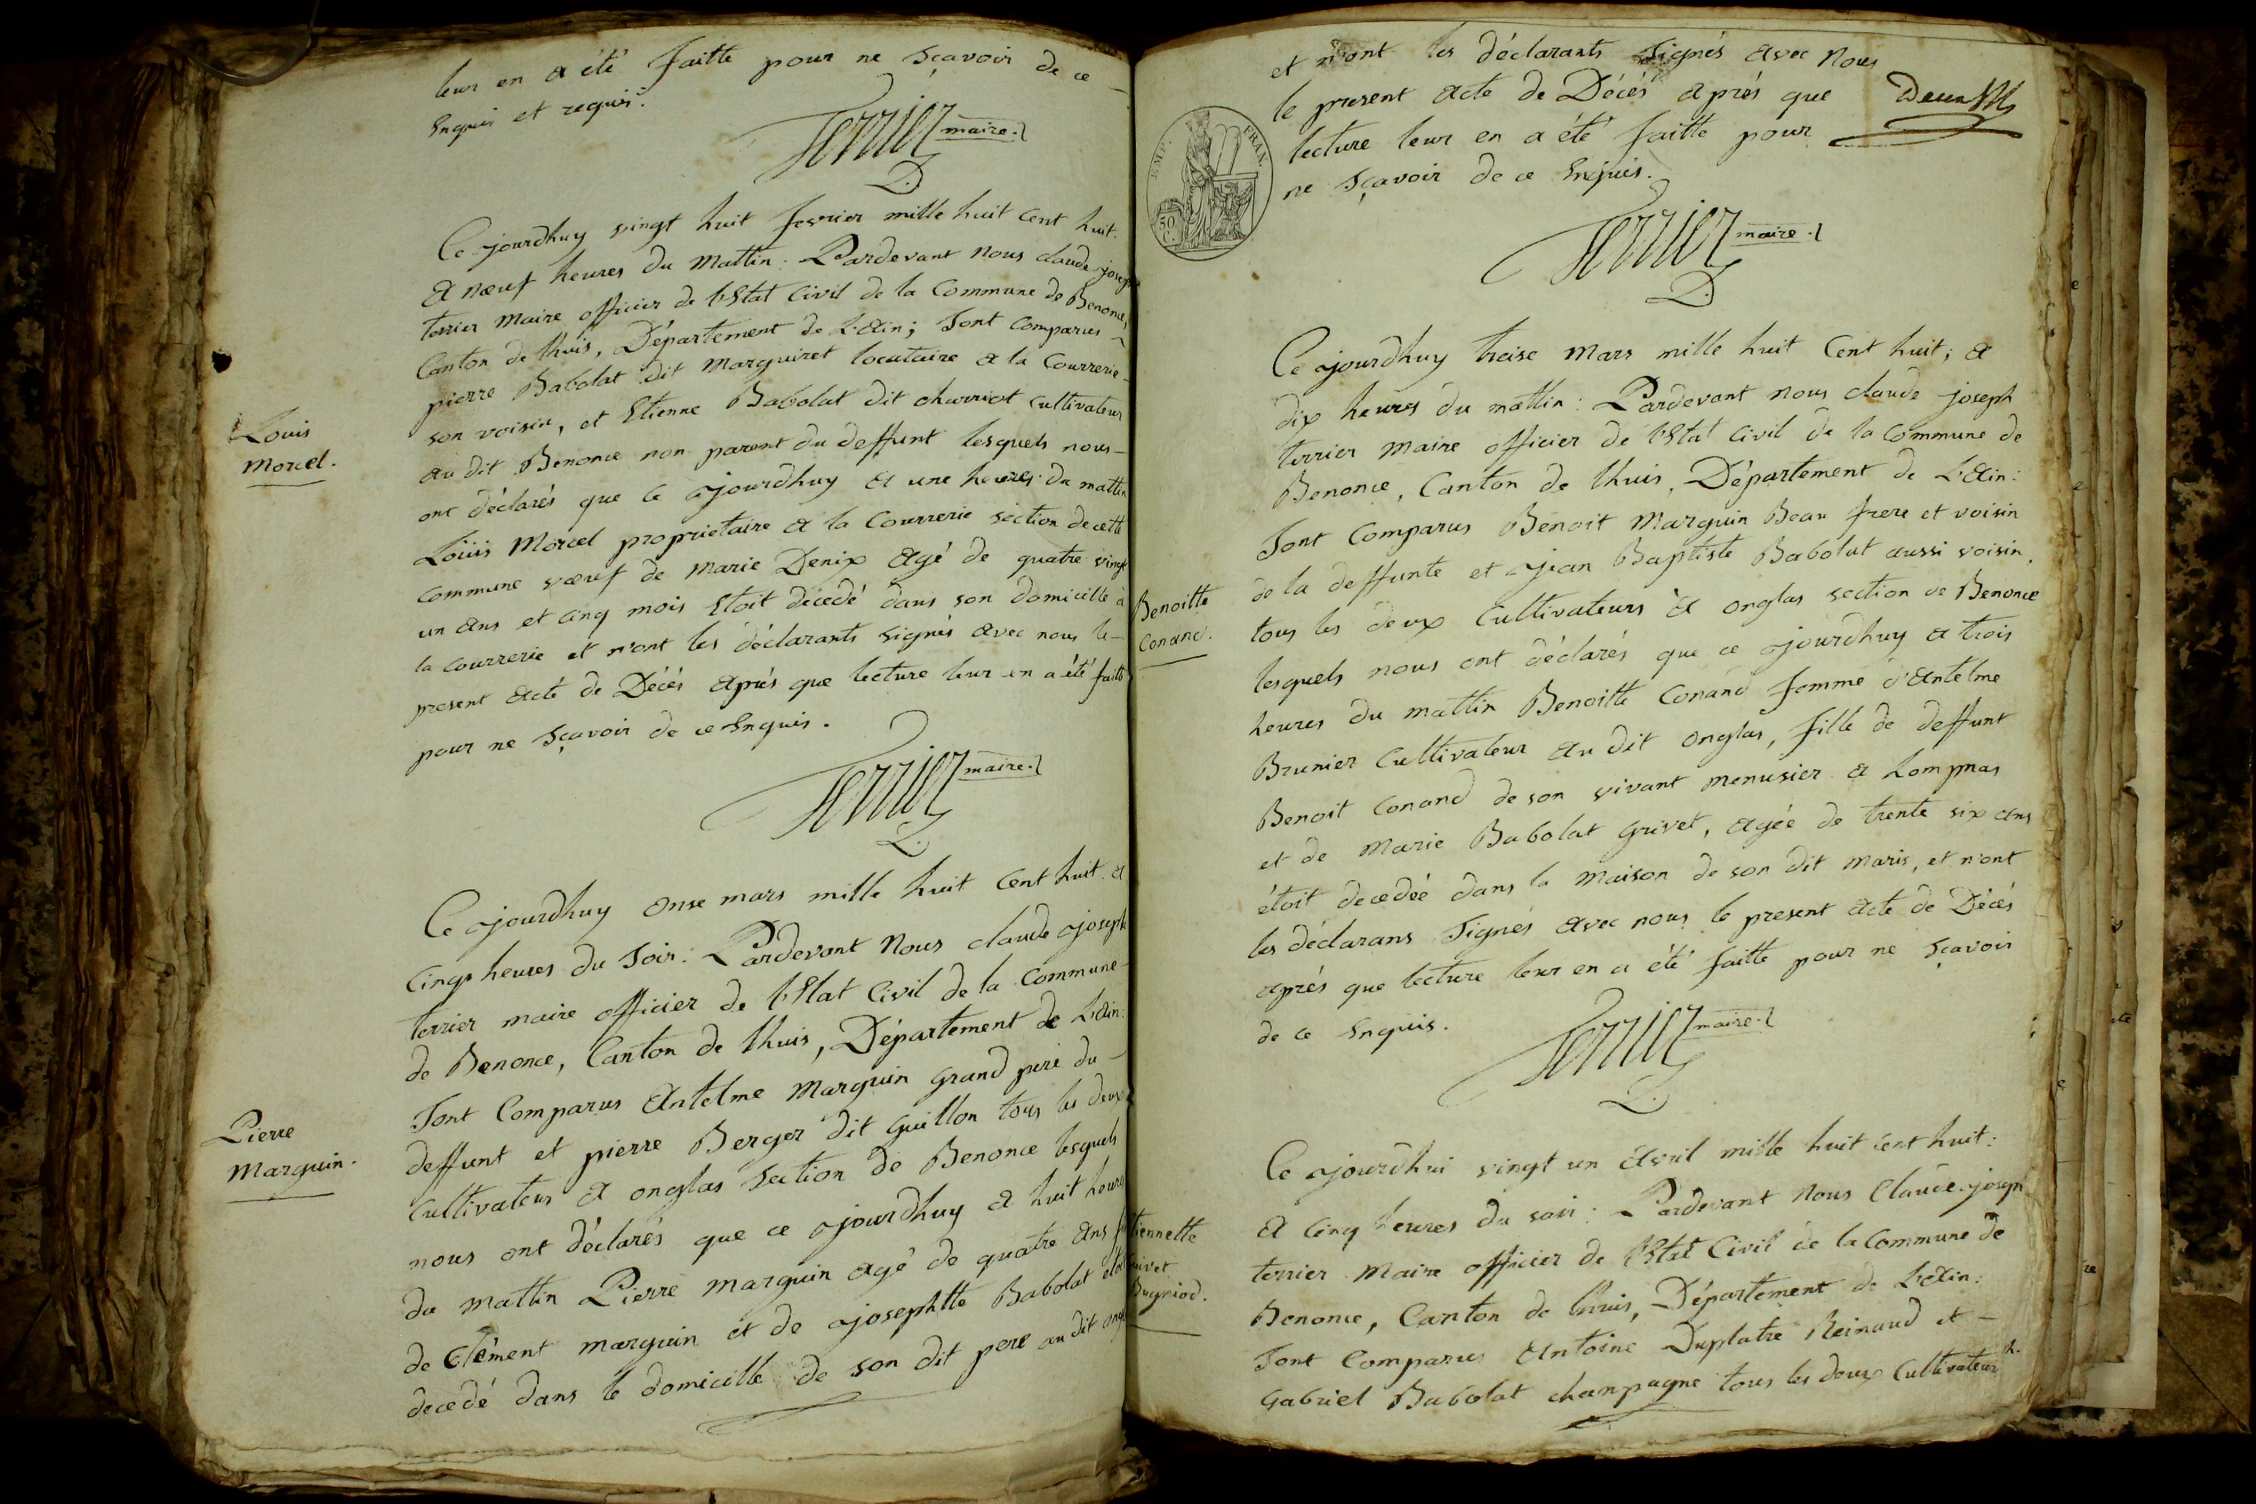 leur en a été faitte pour ne sçavoir de ce
Enquis et requis.
Terrier maire
Louis
Morcel.
Ce ajourdhuy vingt huit fevrier mille huit cent huit.
a nœuf heures du mattin : Pardevant nous claude joseph
terrier maire officier de l'Etat Civil de la Commune de Benonce,
Canton de lhuis, Département de L'Ain; Sont comparus
pierre Babolat dit Marguiret locataire a la Courrerie
son voisin, et Etienne Babolat dit charriot cultivateur
au dit Benonce non parent du deffunt lesquels nous
ont déclarés que ce ajourdhuy a une heures du mattin
Loüis Morcel proprietaire a la Courrerie section de cette
commune vœuf de Marie Denix agé de quatre vingt
un ans et cinq mois Etoit décédé dans son domicille à
la courrerie et n'ont les déclarants signés avec nous le
present acte de Décés aprés que lecture leur en a été faitte
pour ne sçavoir de ce Enquis.
Terrier maire
Pierre
Marguin.
Ce ajourdhuy onse mars mille huit cent huit. a
cinq heures du soir : Pardevant Nous claude ajoseph
terrier maire officier de l'Etat Civil de la commune
de Benonce, Canton de lhuis, Département de L'Ain:
Sont Comparus Antelme Marguin grand pere du
deffunt et pierre Berger dit Guillon tous les deux
Cultivateurs a onglas Section de Benonce lesquels
nous ont déclarés que ce ajourdhuy a huit heures
du mattin Pierre marguin agé de quatre ans
de Clément marguin et de ajosephtte Babolat etoit
decedé dans le domicille de son dit pere au dit
et n'ont les déclarants Signés avec Nous
le present acte de Décés aprés que
lecture leur en a été faitte pour
ne sçavoir de ce Enquis.
EMP. FRAN.
50 C.
Terrier maire
Benoitte
Conand.
Ce ajourdhuy treise Mars mille huit Cent huit; a
dix heures du mattin : Pardevant nous claude joseph
terrier maire officier de l'Etat civil de la commune de
Benonce, Canton de lhuis, Département de L'Ain:
Sont Comparus Benoit Marguin Beau frere et voisin
de la deffunte et ajean Baptiste Babolat aussi voisin,
tous les deux Cultivateurs a onglas section de Benonce
lesquels nous ont déclarés que ce ajourdhuy a trois
heures du mattin Benoitte Conand femme d'Antelme
Brunier Cultivateur au dit onglas, fille de deffunt
Benoit Conand de son vivant menusier a Lompnas
et de Marie Babolat Grivet, agée de trente six ans
étoit decedée dans la maison de son dit maris, et n'ont
les déclarans Signés avec nous le present acte de Décés
aprés que lecture leur en a été faitte pour ne sçavoir
de ce Enquis.
Terrier maire
tiennette
Bugniod.
Ce ajourdhui vingt un avril mille huit cent huit:
a cinq heures du soir : Pardevant Nous Claude joseph
terrier Maire officier de l'Etat Civil de la Commune de
Benonce, Canton de lhuis, Département de L'Ain:
Sont Comparus Antoine Duplatre Reinaud et
Gabriel Babolat champagne tous les deux Cultivateurs